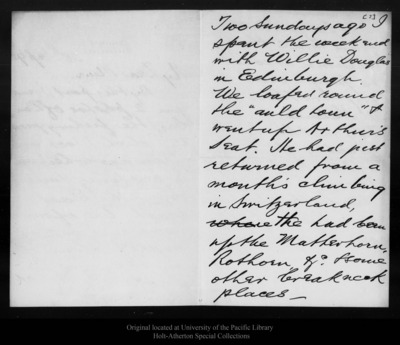 [3]
Two Sundays ago I
spent the week end
with Willie Douglas
in Edinburgh.
We loafed round
the "auld toun" &
went up Arthur's
Seat. He had just
returned from a
month's climbing
in Switzerland,
where the had been
up the Matterhorn,
Rothorn, &c. & some
other breakneck
places —
Original located at University of the Pacific Library
Holt-Atherton Special Collections